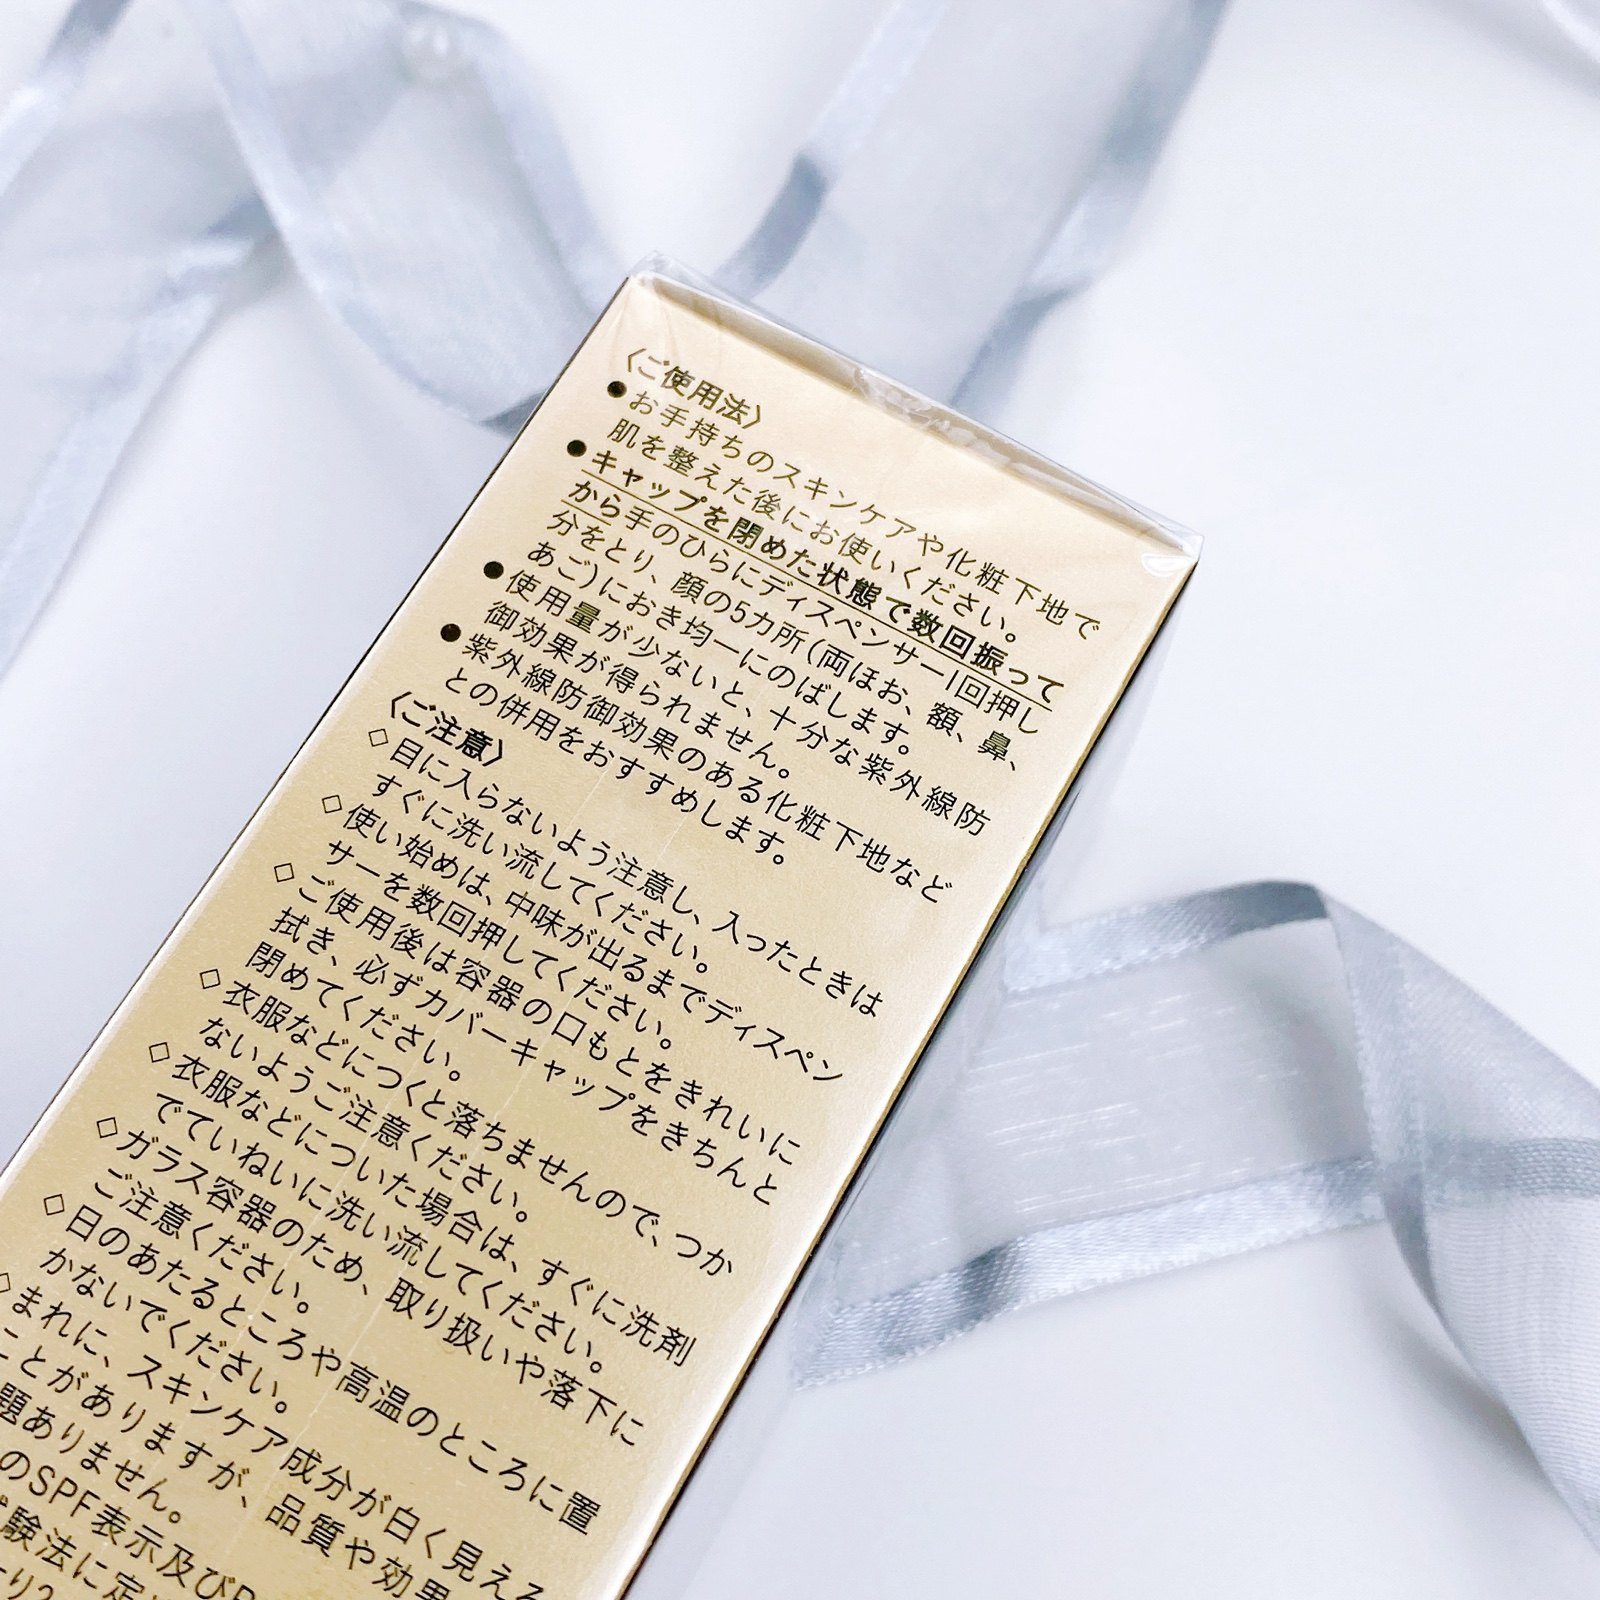 〈ご使用法〉
●お手持ちのスキンケアや化粧下地で
肌を整えた後にお使いください。
●キャップを閉めた状態で数回振って
から手のひらにディスペンサー1回押し
分をとり、顔の5カ所(両ほお、額、鼻、
あご)におき均一にのばします。
●使用量が少ないと、十分な紫外線防
御効果が得られません。
●紫外線防御効果のある化粧下地など
との併用をおすすめします。
〈ご注意〉
◇目に入らないよう注意し、入ったときは
すぐに洗い流してください。
◇使い始めは、中味が出るまでディスペン
サーを数回押してください。
◇ご使用後は容器の口もとをきれいに
拭き、必ずカバーキャップをきちんと
閉めてください。
◇衣服などにつくと落ちませんので、つか
ないようご注意ください。
◇衣服などについた場合は、すぐに洗剤
でていねいに洗い流してください。
◇ガラス容器のため、取り扱いや落下に
ご注意ください。
◇日のあたるところや高温のところに置
かないでください。
◇まれに、スキンケア成分が白く見える
ことがありますが、品質や効果
題ありません。
のSPF表示及びP
験法に定